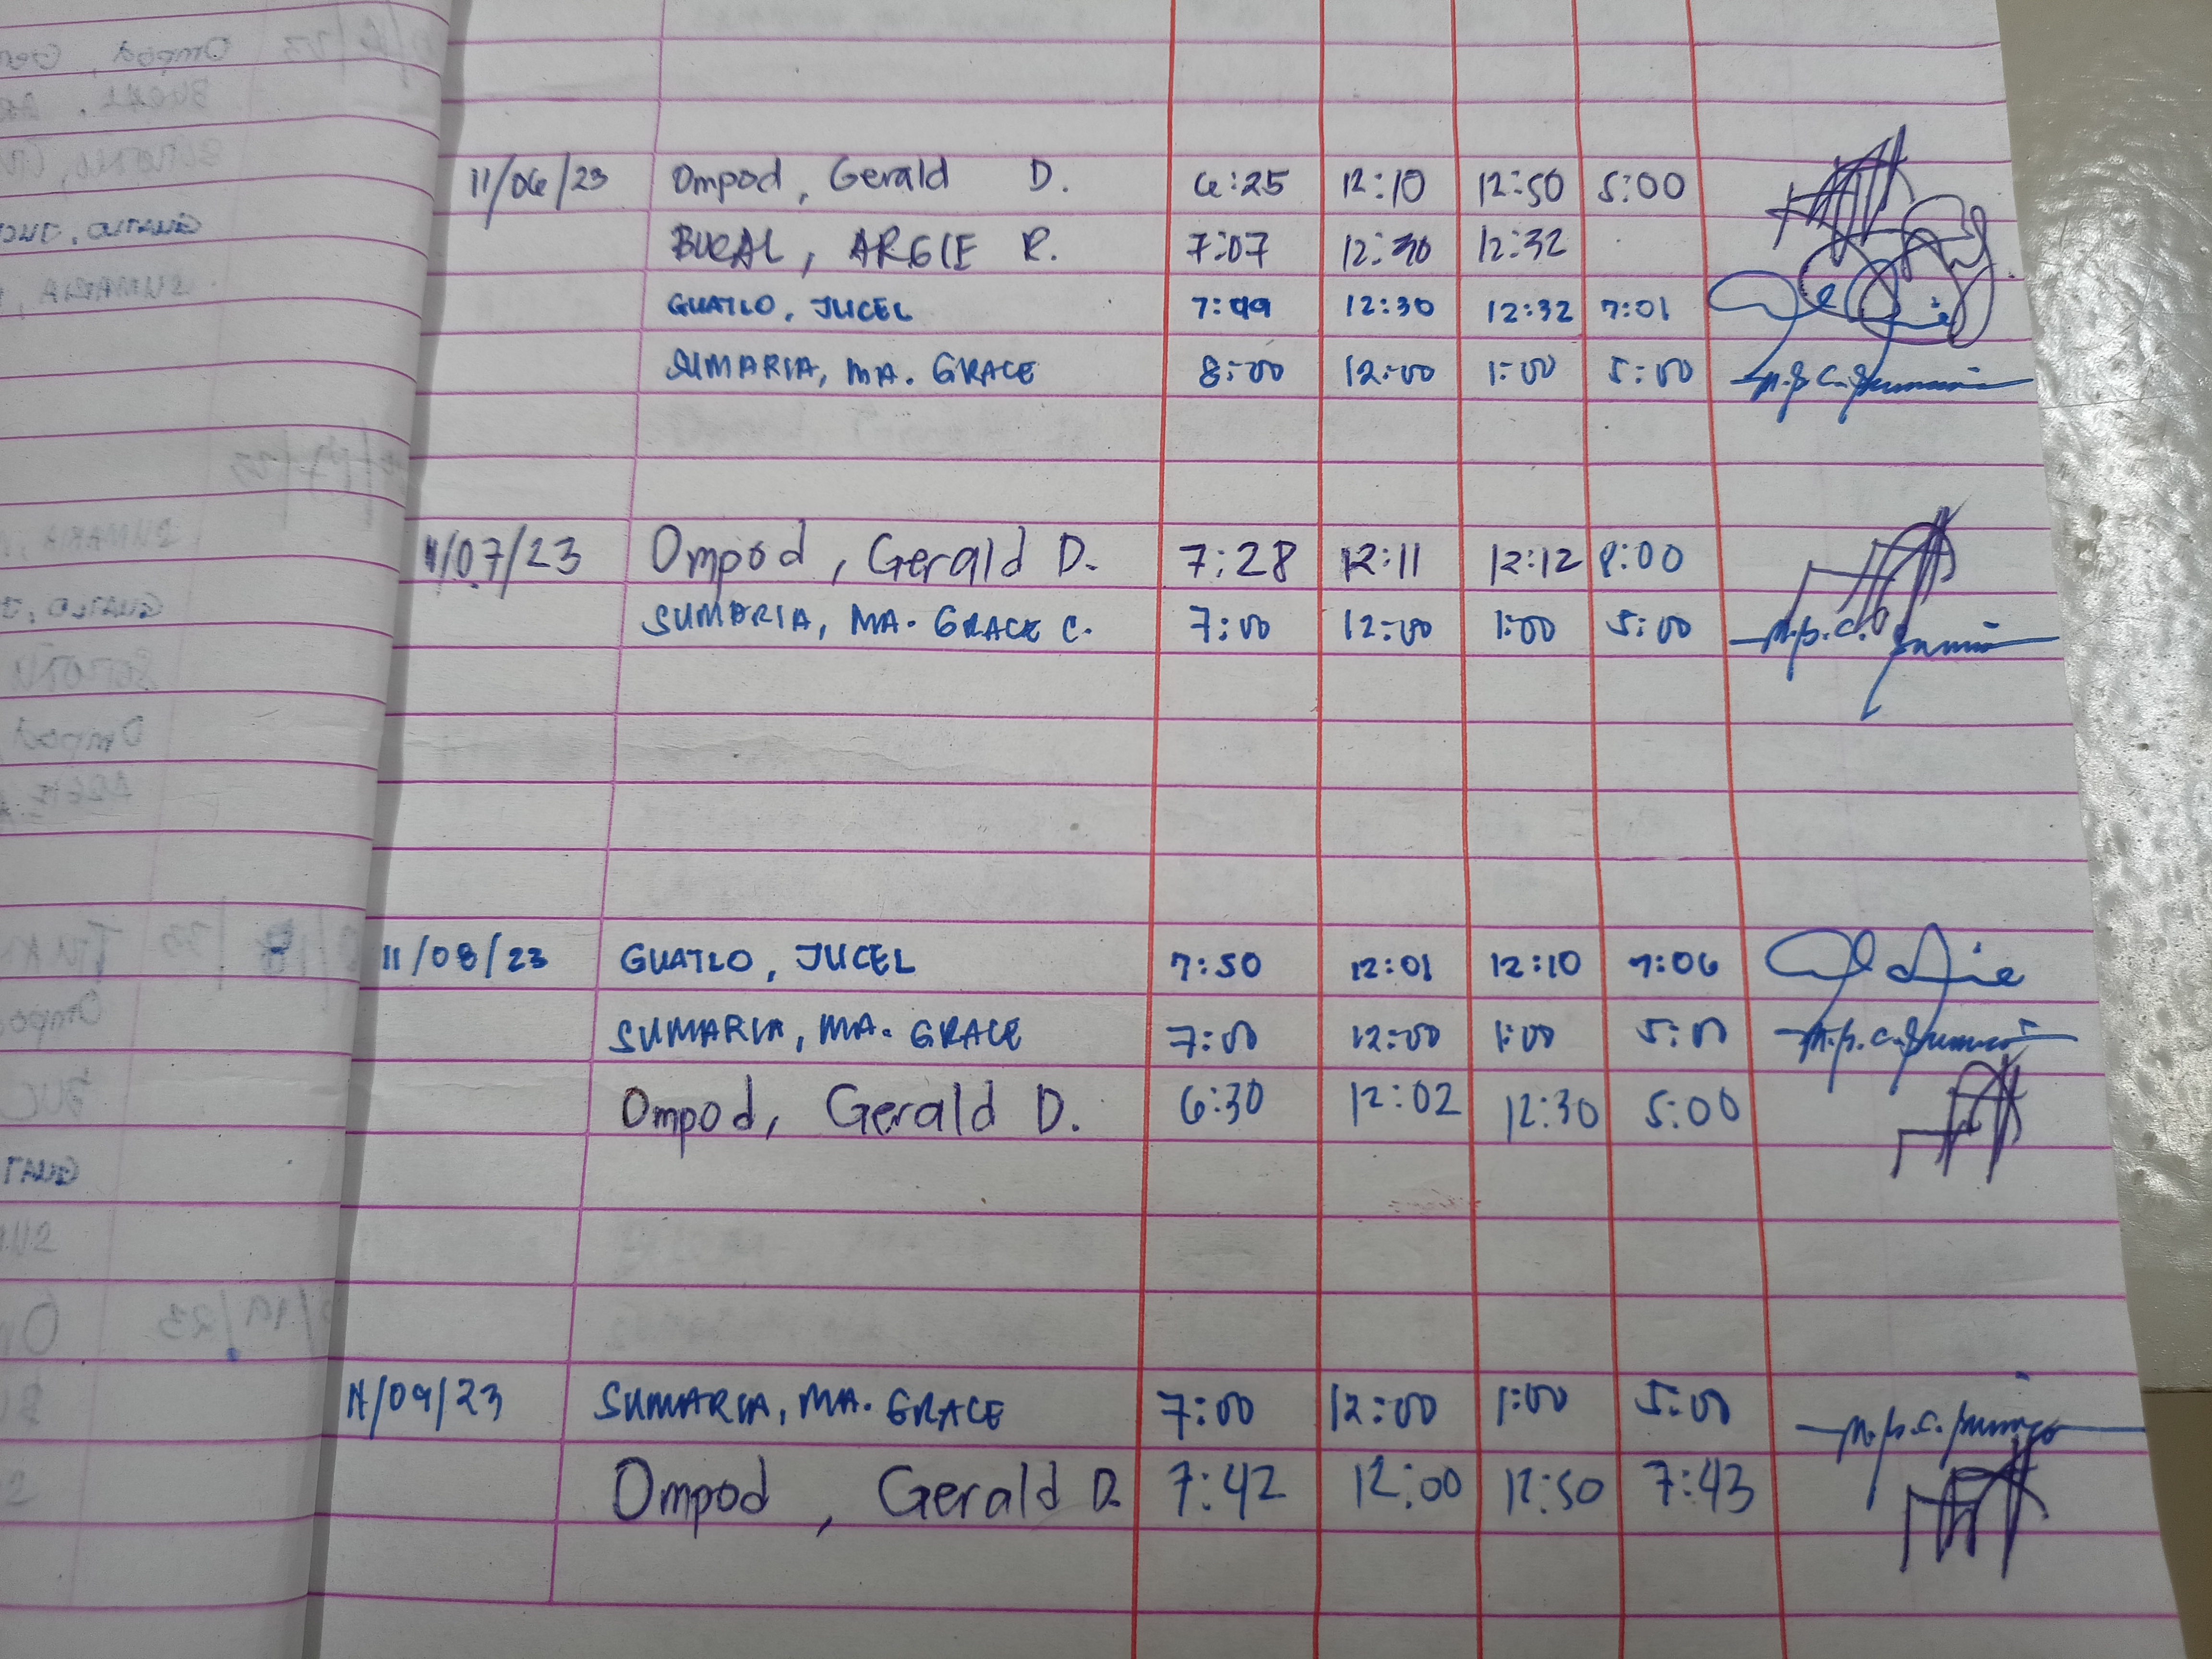 11/06/23 Ompod, Gerald D. 6:25 12:10 12:50 5:00
BUCAL, ARGIE R. 7:07 12:30 12:32
GUATLO, JUCEL 7:49 12:30 12:32 7:01
SUMARIA, MA. GRACE 8:00 12:00 1:00 5:00
11/07/23 Ompod, Gerald D. 7:28 12:11 12:12 8:00
SUMARIA, MA. GRACE C. 7:00 12:00 1:00 5:00
11/08/23 GUATLO, JUCEL 7:50 12:01 12:10 7:06
SUMARIA, MA. GRACE 7:00 12:00 1:00 5:00
Ompod, Gerald D. 6:30 12:02 12:30 5:00
11/09/23 SUMARIA, MA. GRACE 7:00 12:00 1:00 5:00
Ompod, Gerald D. 7:42 12:00 12:50 7:43